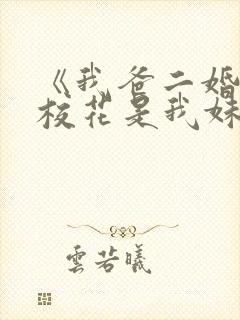 《我爸二婚
校花是我妹
雲若曦